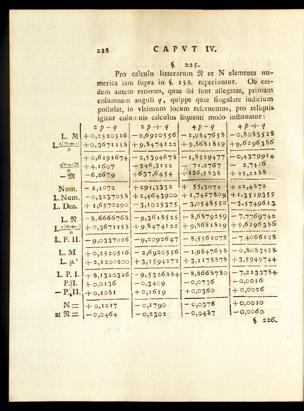 218 CAPVT IV.
§. 225.
Pro calculo litterarum 𝔑 et N elementa nu-
merica iam supra in §. 158. reperiuntur. Ob eas-
dem autem rationes, quae ibi sunt allegatae, primam
columnam anguli q, quippe quae singulare iudicium
postulat, in vltimum locum reseruemus, pro reliquis
igitur columnis calculus sequenti modo instituatur:
2p−q 2p+q 4p−q 4p+q
L. M +0,2520516 −2,6920556 −1,9847658 −0,8083528
+0,3671158 +9,8474122 +9,8681819 +9,6296386
+0,6191674 −2,5394678 −1,8529477 −0,4379914
+4,1607 −346,3122 −71,2767 −2,7416
−𝔐 −6,2679 +126,5838 +25,2288
Num. −2,1072 +291,3332 +55,3071 +22,4872
L.Num. −0,3237058 +2,4643900 +1,7427809 +1,3519355
L. Den. +1,6570290 −3,1025375 −3,0548550 −3,5749613
L. 𝔑 −8,6666768 −9,3618525 −8,6879259 −7,7769742
+0,3671158 +9,8474122 +9,8681819 +9,6296386
L. P. II. −9,0337926 −9,2092647 −8,5561078 −7,4066128
L. M +0,2520516 −2,6920556 −1,9847658 −0,8083528
+2,1200200 +3,1594272 +3,1178878 +3,5949744
L. P. I. +8,1320316 −9,5326284 −8,8668780 −7,2133784
P.I. +0,0136 −0,3409 −0,0736 −0,0016
−P.II. +0,1081 +0,1619 +0,0360 +0,0026
N= +0,1217 −0,1790 −0,0376 +0,0010
at 𝔑= −0,0464 −0,2301 −0,0487 −0,0060
§. 226.